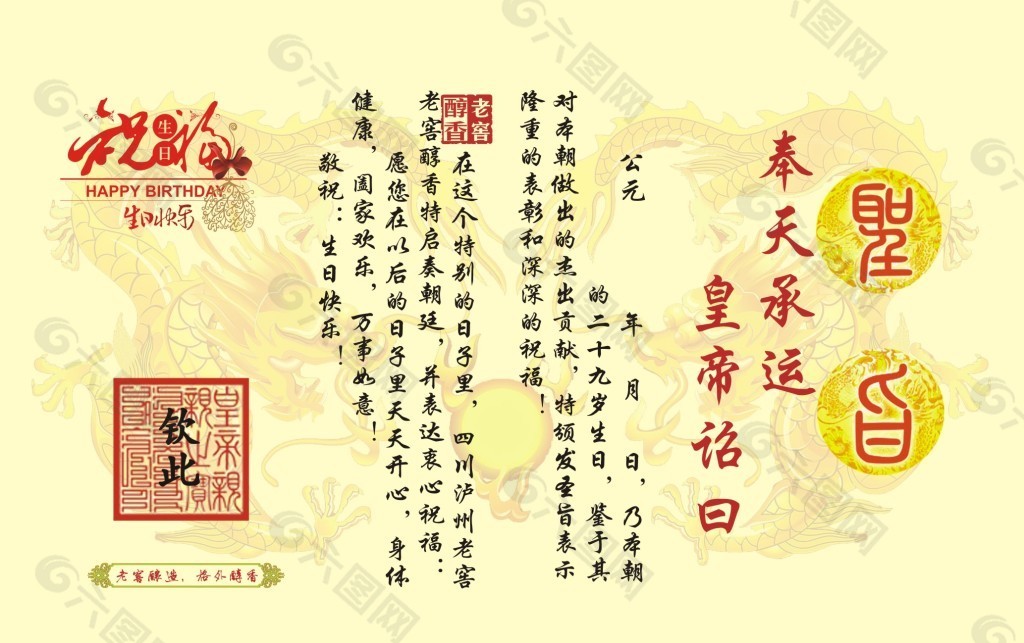 聖旨
奉天承运
皇帝诏曰
公元 年 月 日，乃本朝
的二十九岁生日，鉴于其
对本朝做出的杰出贡献，特颁发圣旨表示
隆重的表彰和深深的祝福！
老窖醇香
在这个特别的日子里，四川泸州老窖
老窖醇香特启奏朝廷，并表达衷心祝福：
愿您在以后的日子里天天开心，身体
健康，阖家欢乐，万事如意！
敬祝：生日快乐！
祝福
生日
HAPPY BIRTHDAY
生日快乐
钦此
老窖釀造，格外醇香
六图网